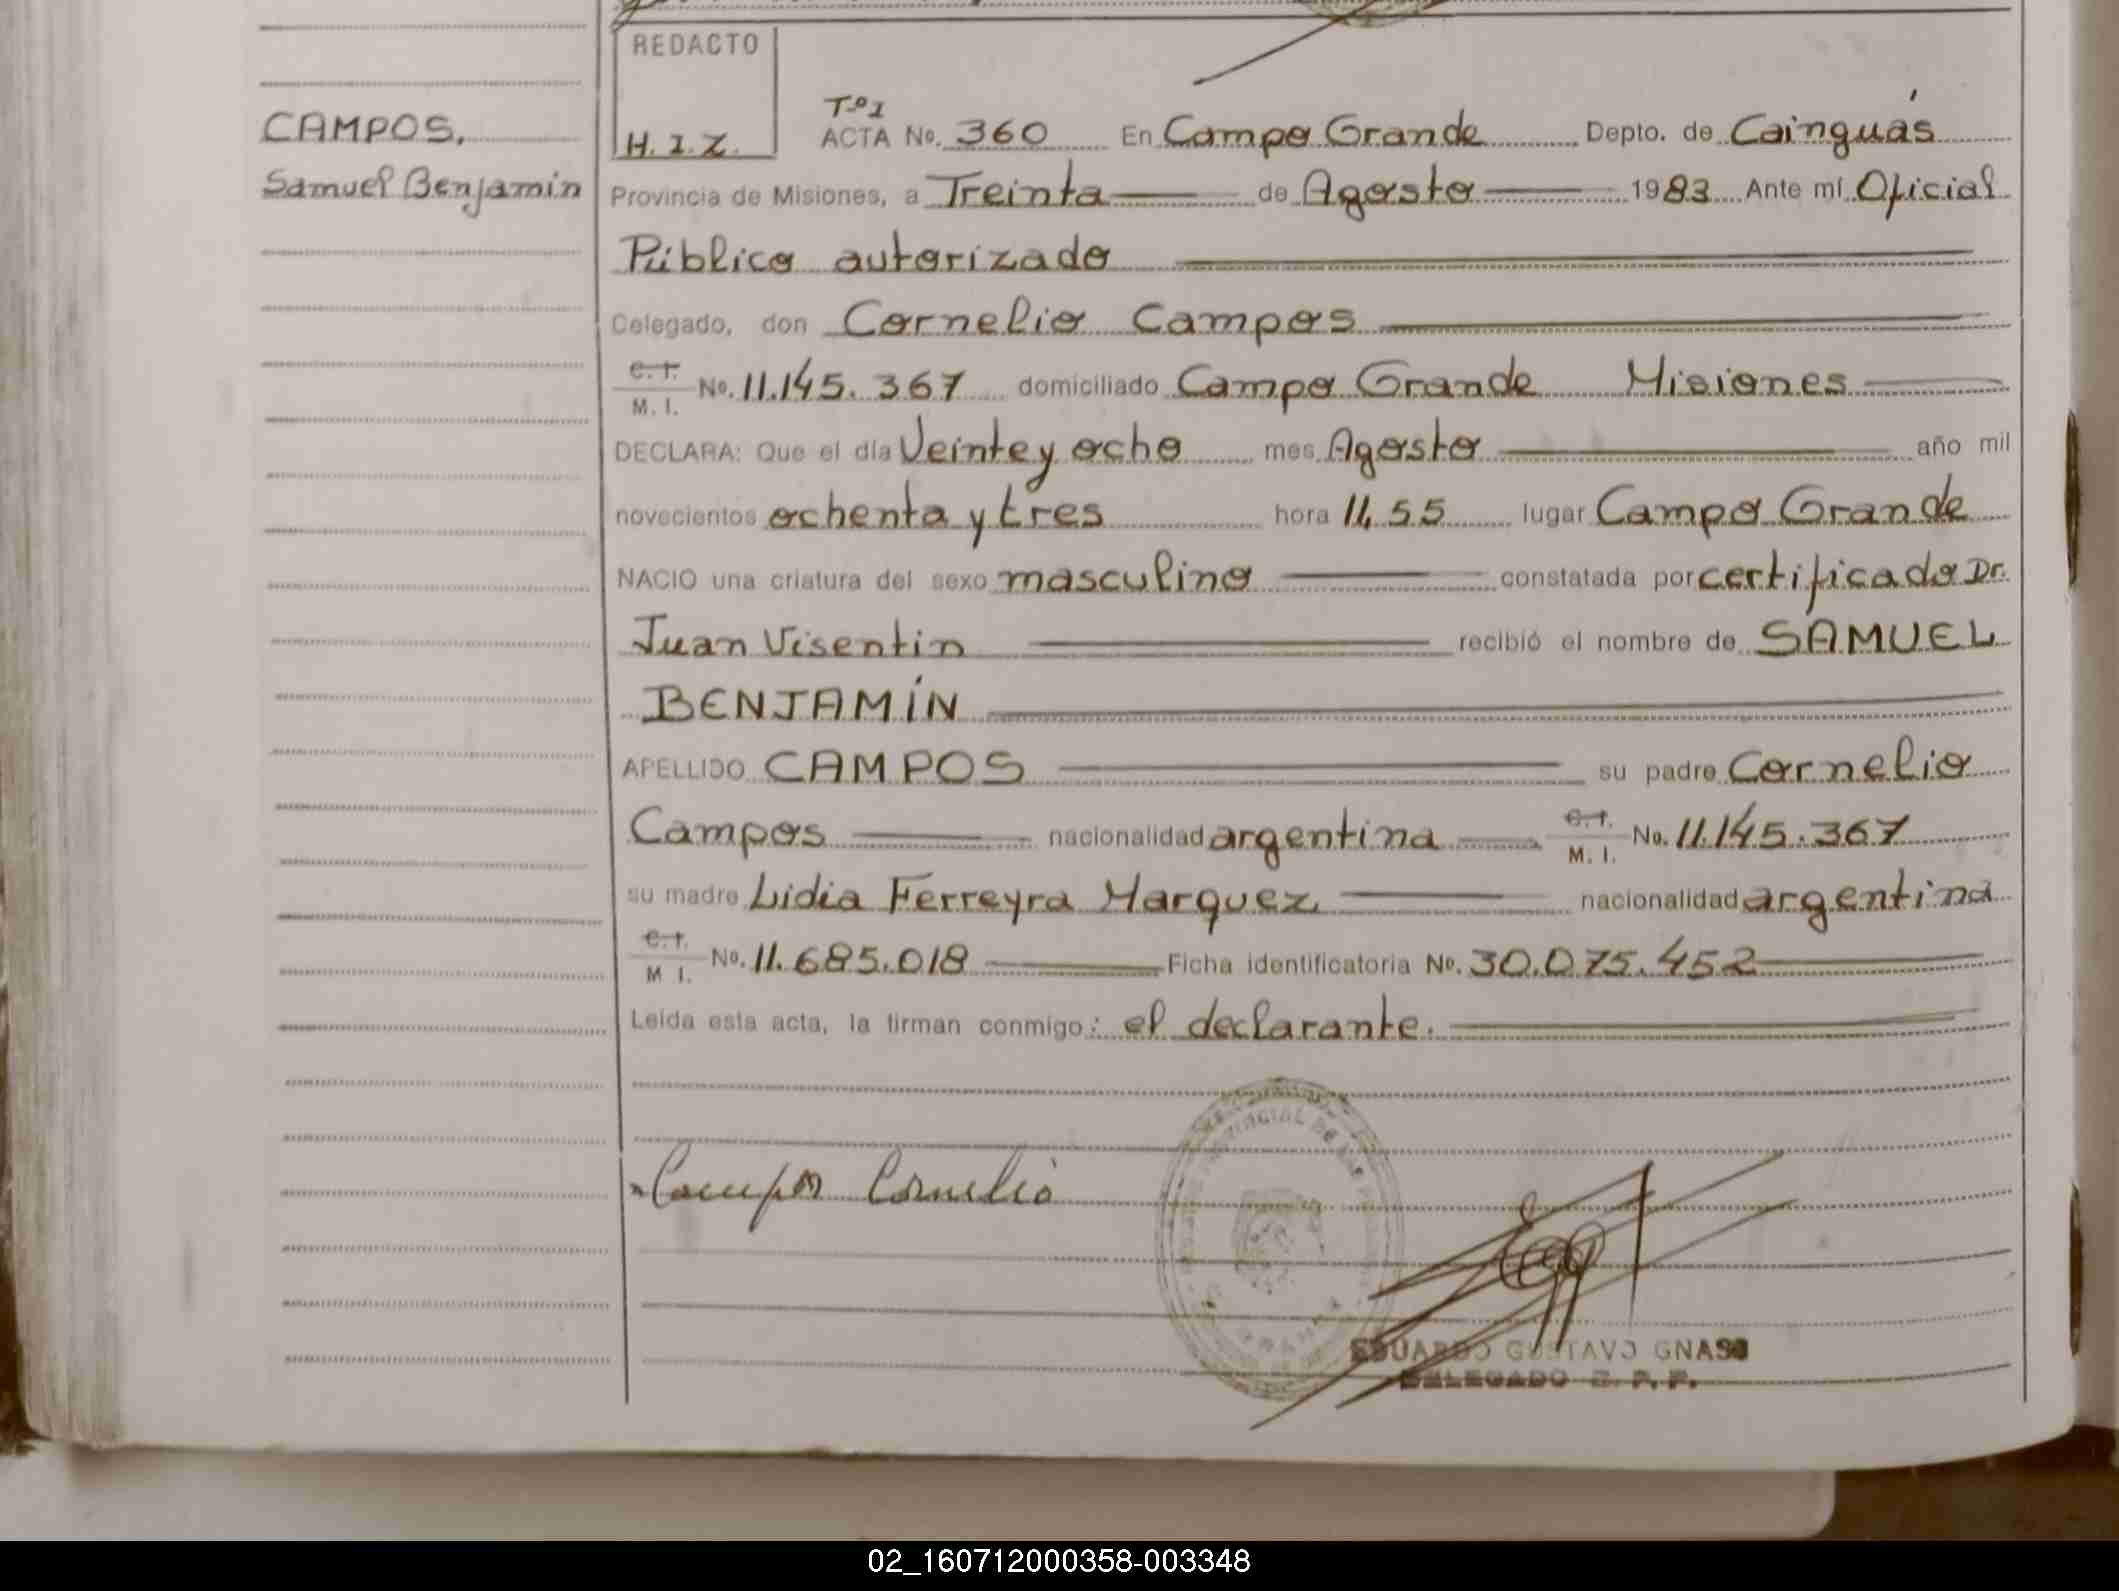 REDACTO
H.I.Z.
CAMPOS,
Samuel Benjamín
Tº1
ACTA No. 360 En Campo Grande Depto. de Cainguás
Provincia de Misiones, a Treinta de Agosto 1983 Ante mí Oficial
Público autorizado
Delegado, don Cornelio Campos
C.I. M. I. No. 11.145.367 domiciliado Campo Grande Misiones
DECLARA: Que el día Veinte y ocho mes Agosto año mil
novecientos ochenta y tres hora 11,55 lugar Campo Grande
NACIO una criatura del sexo masculino constatada por certificado Dr.
Juan Visentin recibió el nombre de SAMUEL
BENJAMÍN
APELLIDO CAMPOS su padre Cornelio
Campos nacionalidad argentina C.I. M. I. No. 11.145.367
su madre Lidia Ferreyra Marquez nacionalidad argentina
C.I. M I. No. 11.685.018 Ficha identificatoria No. 30.075.452
Leída esta acta, la firman conmigo: el declarante.
Campos Cornelio
EDUARDO GUSTAVO GNASO
DELEGADO
02_160712000358-003348